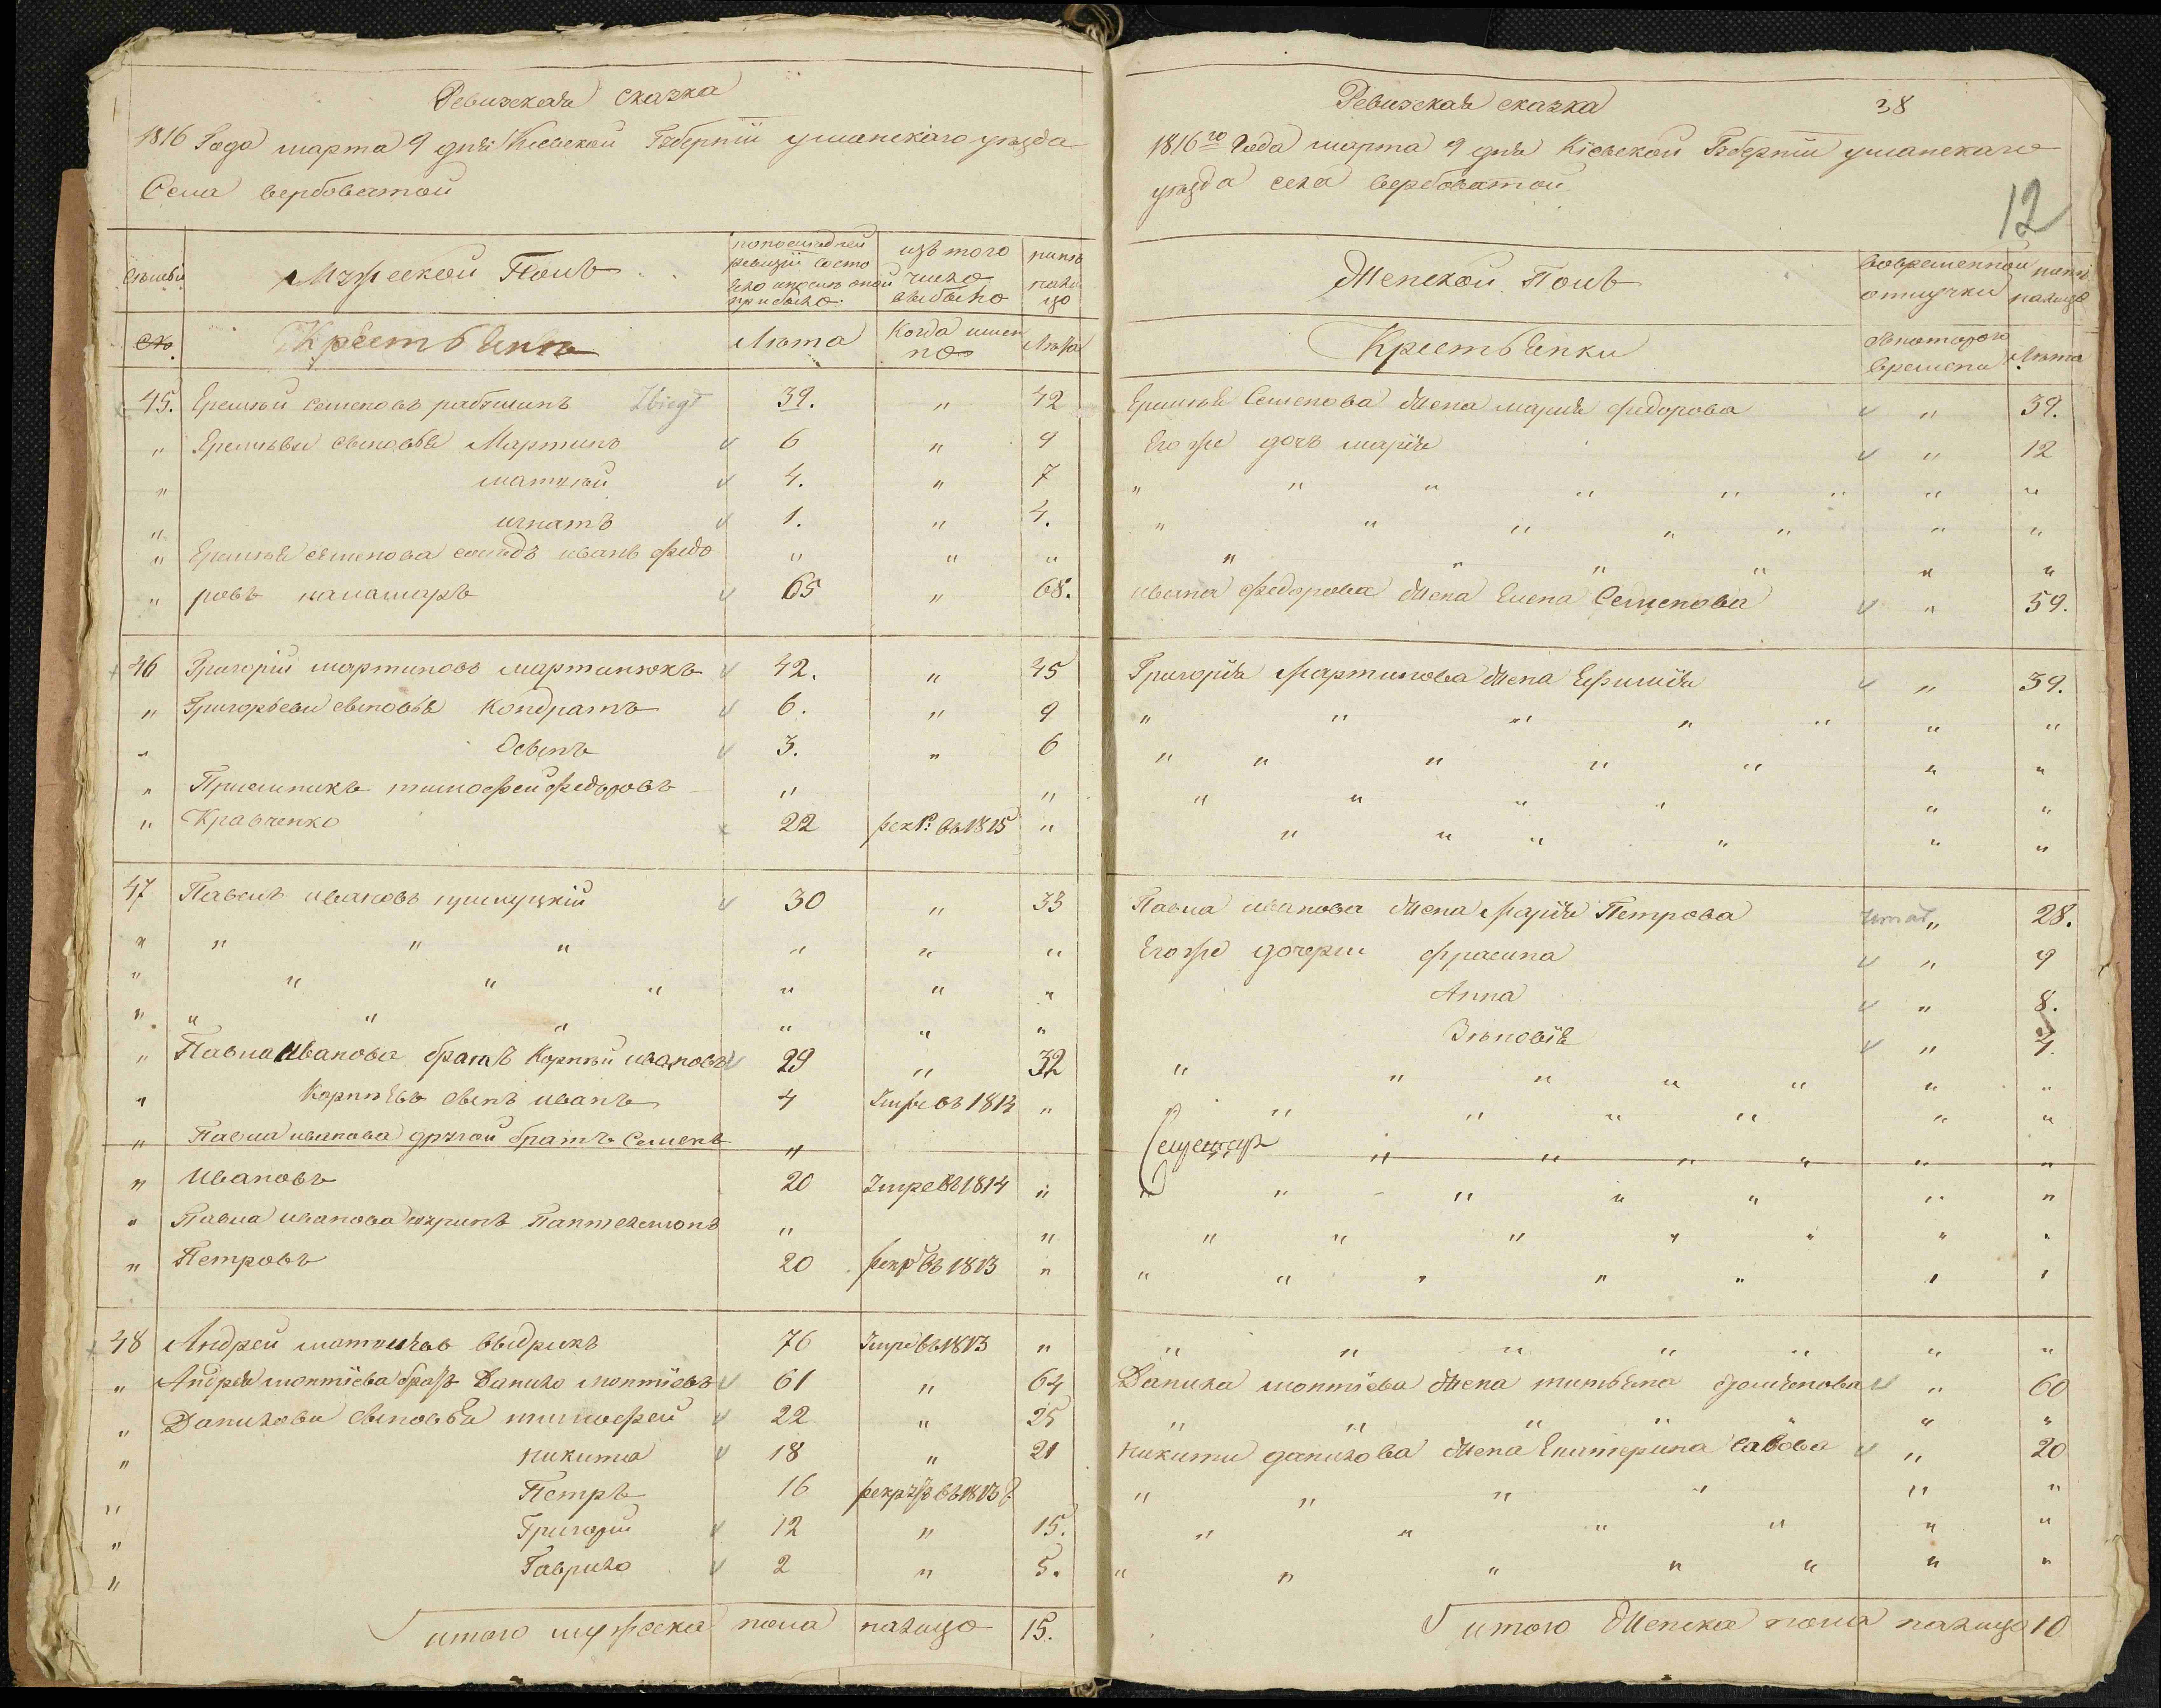 Ревизская сказка
1816 Года марта 9 дня Киевской Губернїи уманскаго уезда
Села вербоватой
Мужеской Полъ
изъ того
число
выбыло
ныне
нали
цо
Крестьянъ
Лета
Когда имен
но
Лета
45. Еремѣй семеновъ 39. " 42
" Еремѣевы сыновья Мартинъ 6 " 9
" матвѣй 4. " 7
" игнатъ 1. " 4.
" Еремѣя семенова соседъ иванъ федо " " "
" ровъ паламаръ 65 " 68.
46 Григорїй мартиновъ мартинюкъ 42. " 45
" Григорьевы сыновья Кондратъ 6. " 9
" Осипъ 3. " 6
" Приемникъ тимофей федоровъ " "
" Кравченко 22 рекр: въ 1815 "
47 Павелъ ивановъ 30 " 33
" " " " " " "
" " " " " " "
" " " " " " "
" Павла Иванова братъ Корнѣй ивановъ 29 " 32
" Корнѣевъ сынъ иванъ 4 Умре въ 1813 "
" Павла иванова другой братъ Семенъ "
" Ивановъ 20 Умре въ 1814 "
" Павла иванова шуринъ Пантелемонъ " "
" Петровъ 20 рекр въ 1813 "
48 Андрей матвѣевъ выдрикъ 76 Умре въ 1813 "
" Андрея матвїева братъ Данило матвїевъ 61 " 64
" Данилови сыновья тимофей 22 " 25
" никита 18 " 21
" Петръ 16 рекрутъ въ 1813 г.
" Григорїй 12 " 15.
" Гаврило 2 " 5.
итого мужеска пола налицо 15.
Ревизская сказка 38
1816го Года марта 9 дня Кїевской Губернїи уманскаго
уезда села вербоватой
12
Женской Полъ
вовременной
отлучки
ныне
налицо
Крестьянки
съкоторого
времени
Лета
Еремѣя Семенова жена марїя федорова " 39.
Его же дочь марїя " 12
" " " " " " " "
" " " " " " "
" " " " " "
ивана федорова жена Елена Семенова " 59.
Григорїя Мартинова жена Ефимїя " 39.
" " " " " " "
" " " " " " "
" " " " " "
" " " " " "
Павла иванова жена Марїя Петрова " 28.
Его же дочери фросина " 9
Анна " 8.
Зѣновїя "
" " " " " " "
" " " " " "
" " " " " "
" " " " " "
" " " " " " "
" " " " " " "
" " " " " " "
Данила матвїева жена татьяна " 60
" " " " " "
никити данилова жена Екатерина савова " 20
" " " " " "
" " " " " "
" " " " " " "
итого женска пола налицо 10